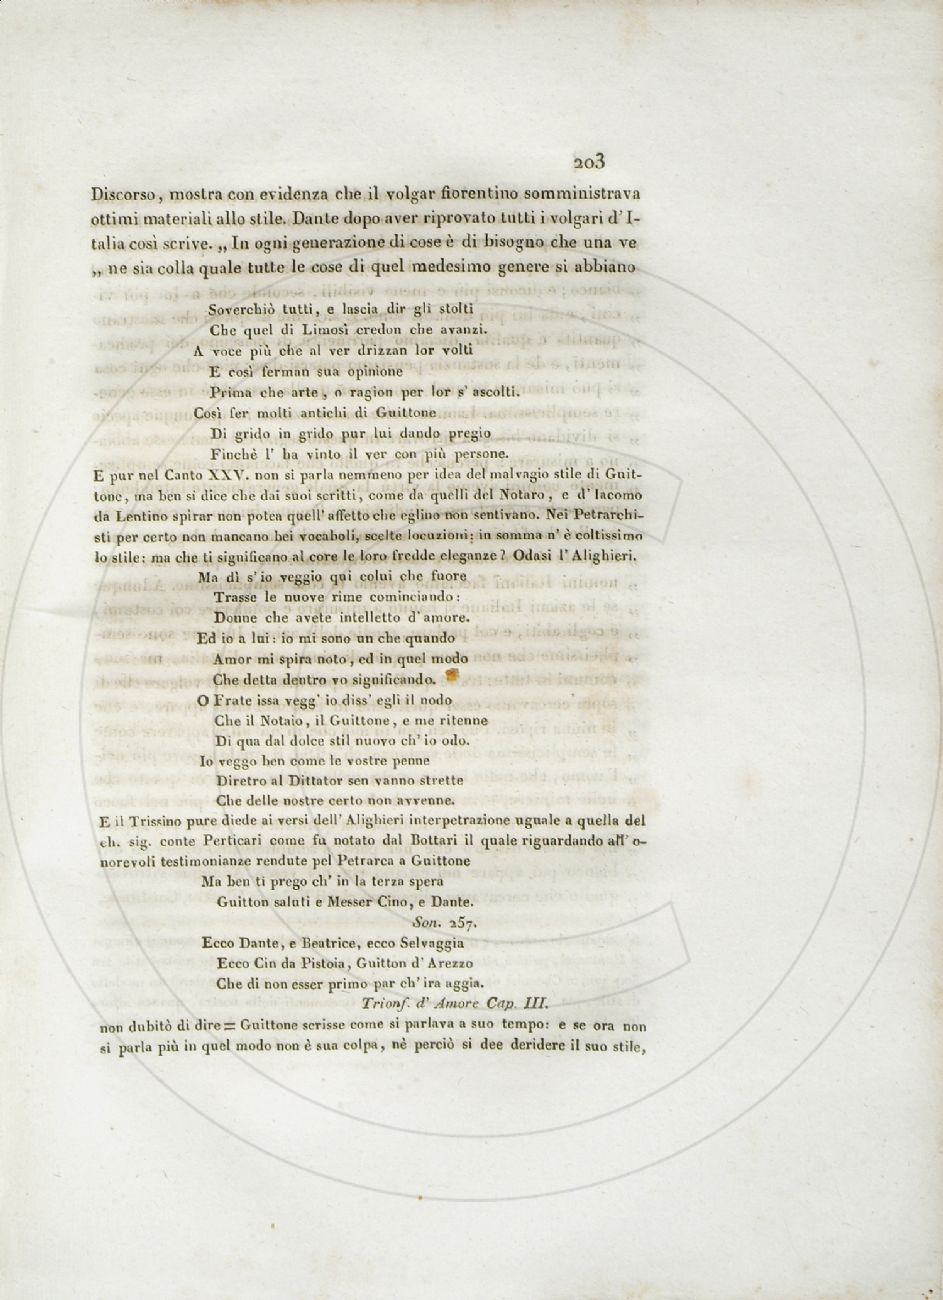 203
Discorso, mostra con evidenza che il volgar fiorentino somministrava
ottimi materiali allo stile. Dante dopo aver riprovato tutti i volgari d' I-
talia così scrive. „ In ogni generazione di cose è di bisogno che una ve
„ ne sia colla quale tutte le cose di quel medesimo genere si abbiano
Soverchiò tutti, e lascia dir gli stolti
Che quel di Limosì credon che avanzi.
A voce più che al ver drizzan lor volti
E così ferman sua opinione
Prima che arte, o ragion per lor s' ascolti.
Così fer molti antichi di Guittone
Di grido in grido pur lui dando pregio
Finchè l' ha vinto il ver con più persone.
E pur nel Canto XXV. non si parla nemmeno per idea del malvagio stile di Guit-
tone, ma ben si dice che dai suoi scritti, come da quelli del Notaro, e d' Iacomo
da Lentino spirar non potea quell' affetto che eglino non sentivano. Nei Petrarchi-
sti per certo non mancano bei vocaboli, scelte locuzioni; in somma n' è coltissimo
lo stile: ma che ti significano al core le loro fredde eleganze? Odasi l' Alighieri.
Ma dì s' io veggio qui colui che fuore
Trasse le nuove rime cominciando:
Donne che avete intelletto d' amore.
Ed io a lui: io mi sono un che quando
Amor mi spira noto, ed in quel modo
Che detta dentro vo significando.
O Frate issa vegg' io diss' egli il nodo
Che il Notaio, il Guittone, e me ritenne
Di qua dal dolce stil nuovo ch' io odo.
Io veggo ben come le vostre penne
Diretro al Dittator sen vanno strette
Che delle nostre certo non avvenne.
E il Trissino pure diede ai versi dell' Alighieri interpetrazione uguale a quella del
ch. sig. conte Perticari come fu notato dal Bottari il quale riguardando all' o-
norevoli testimonianze rendute pel Petrarca a Guittone
Ma ben ti prego ch' in la terza spera
Guitton saluti e Messer Cino, e Dante.
Son. 257.
Ecco Dante, e Beatrice, ecco Selvaggia
Ecco Cin da Pistoia, Guitton d' Arezzo
Che di non esser primo par ch' ira aggia.
Trionf. d' Amore Cap. III.
non dubitò di dire = Guittone scrisse come si parlava a suo tempo: e se ora non
si parla più in quel modo non è sua colpa, nè perciò si dee deridere il suo stile,